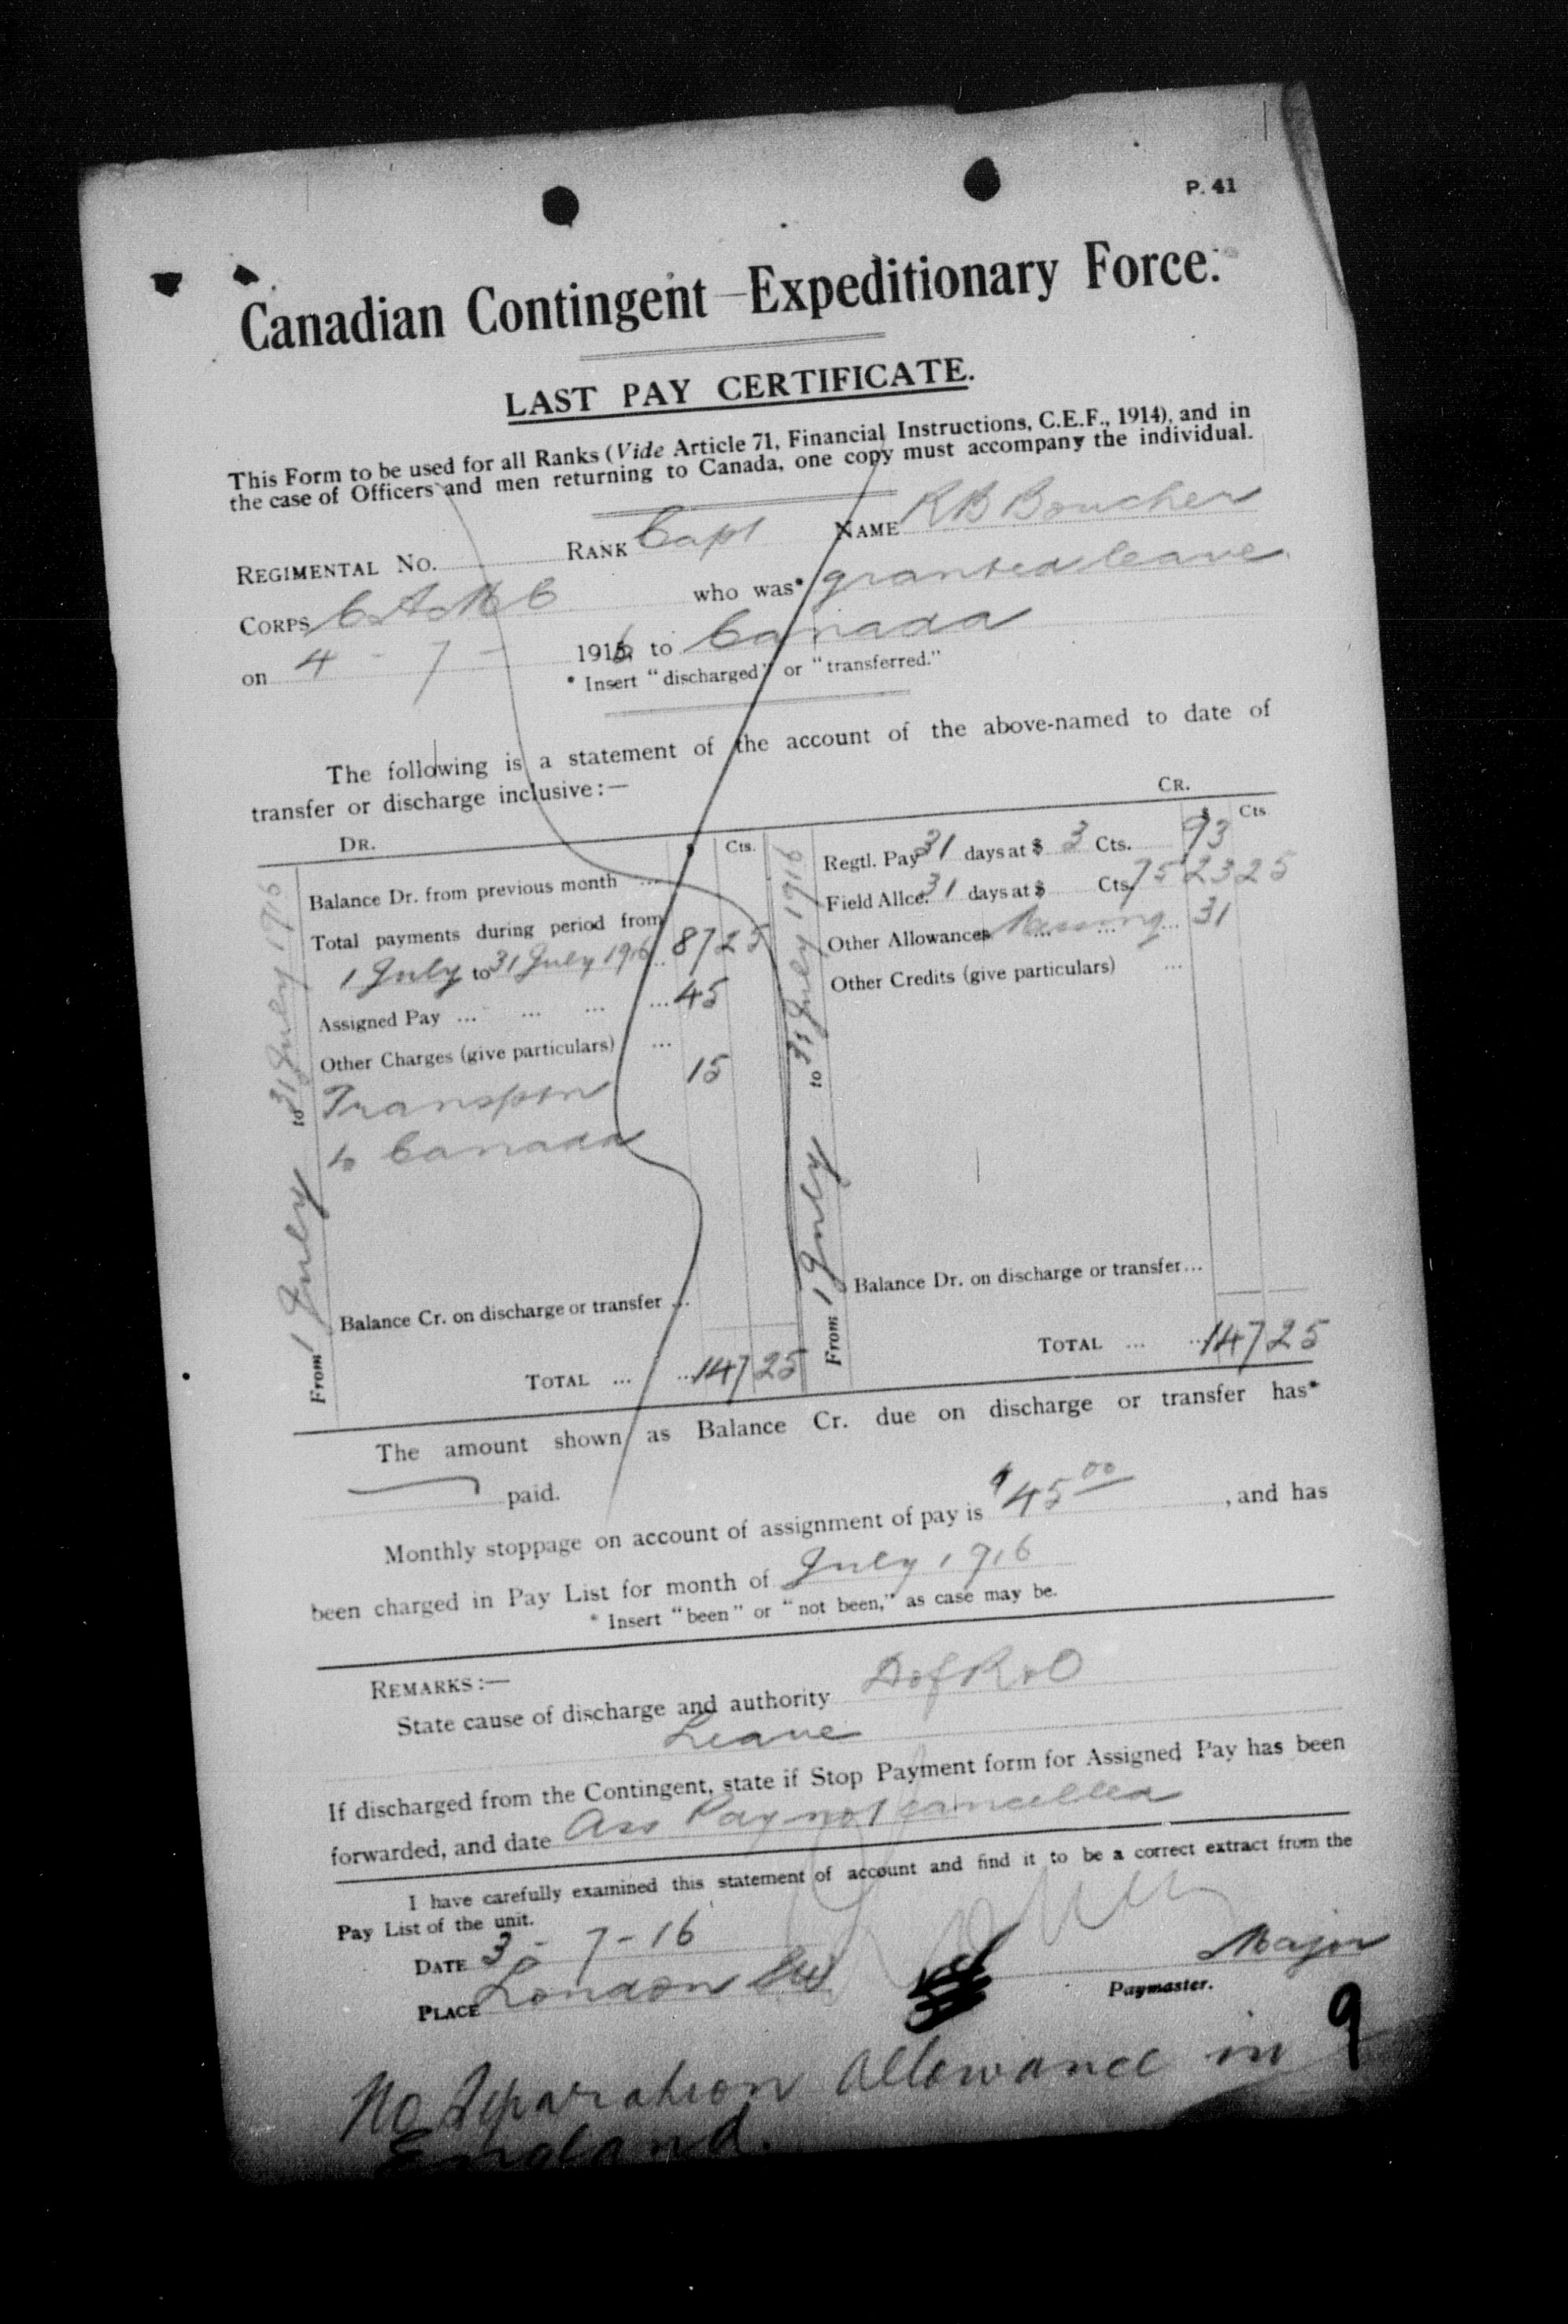 P. 41
Canadian Contingent Expeditionary Force.
LAST PAY CERTIFICATE.
This Form to be used for all Ranks (Vide Article 71, Financial Instructions, C.E.F., 1914), and in
the case of Officers and men returning to Canada, one copy must accompany the individual.
REGIMENTAL NO. RANK Capt NAME R B Boucher
CORPS C A M C who was* granted leave
on 4 - 7 - 1916 to Canada
* Insert "discharged" or "transferred."
The following is a statement of the account of the above-named to date of
transfer or discharge inclusive:—
DR.
$ Cts.
From 1 July to 31 July 1916
Balance Dr. from previous month ...
Total payments during period from
1 July to 31 July 1916 ... 87 25
Assigned Pay ... ... ... ... 45
Other Charges (give particulars) ...
Transptn 15
to Canada
Balance Cr. on discharge or transfer ...
TOTAL ... ... 147 25
CR.
$ Cts
From 1 July to 31 July 1916
Regtl. Pay 31 days at $ 3 Cts. 93
Field Allce. 31 days at $ Cts. 75 23 25
Other Allowances Messing ... ... ... 31
Other Credits (give particulars) ...
Balance Dr. on discharge or transfer...
TOTAL ... ... 147 25
The amount shown as Balance Cr. due on discharge or transfer has*
paid.
Monthly stoppage on account of assignment of pay is $45 00, and has
been charged in Pay List for month of July 1916
* Insert "been" or "not been," as case may be.
REMARKS:—
State cause of discharge and authority D of R & O
Leave
If discharged from the Contingent, state if Stop Payment form for Assigned Pay has been
forwarded, and date Ass Pay not cancelled
I have carefully examined this statement of account and find it to be a correct extract from the
Pay List of the unit.
DATE 3 - 7 - 16
Major
PLACE London SW
Paymaster.
No Separation Allowance in 9
England.